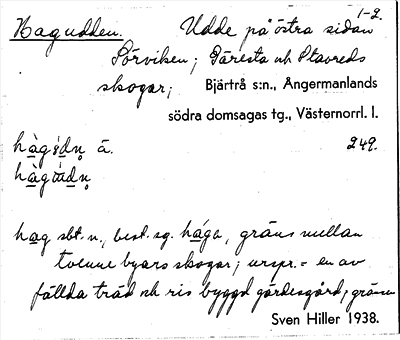 1-2.
Hagudden. Udde på östra sidan
Sörviken; Säresta och Stavreds
skogar; Bjärtrå s:n., Ångermanlands
södra domsagas tg., Västernorrl. l.
å. 249.
hag sbt. n., best. sg. hága, gräns mellan
tvenne byars skogar; urspr. = en av
fällda träd och ris byggd gärdesgård; gräns
Sven Hiller 1938.